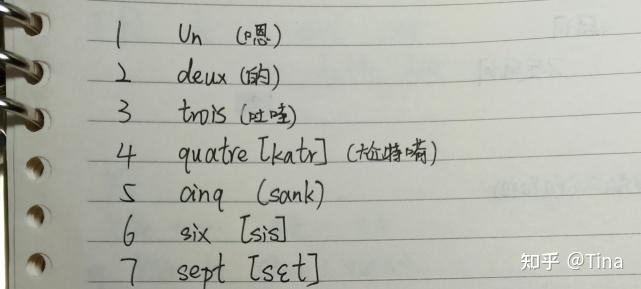 1 Un (嗯)
2 deux (的)
3 trois (吐哇)
4 quatre [katr] (尬特)
5 cinq (sank)
6 six [sis]
7 sept [sεt]
知乎 @Tina